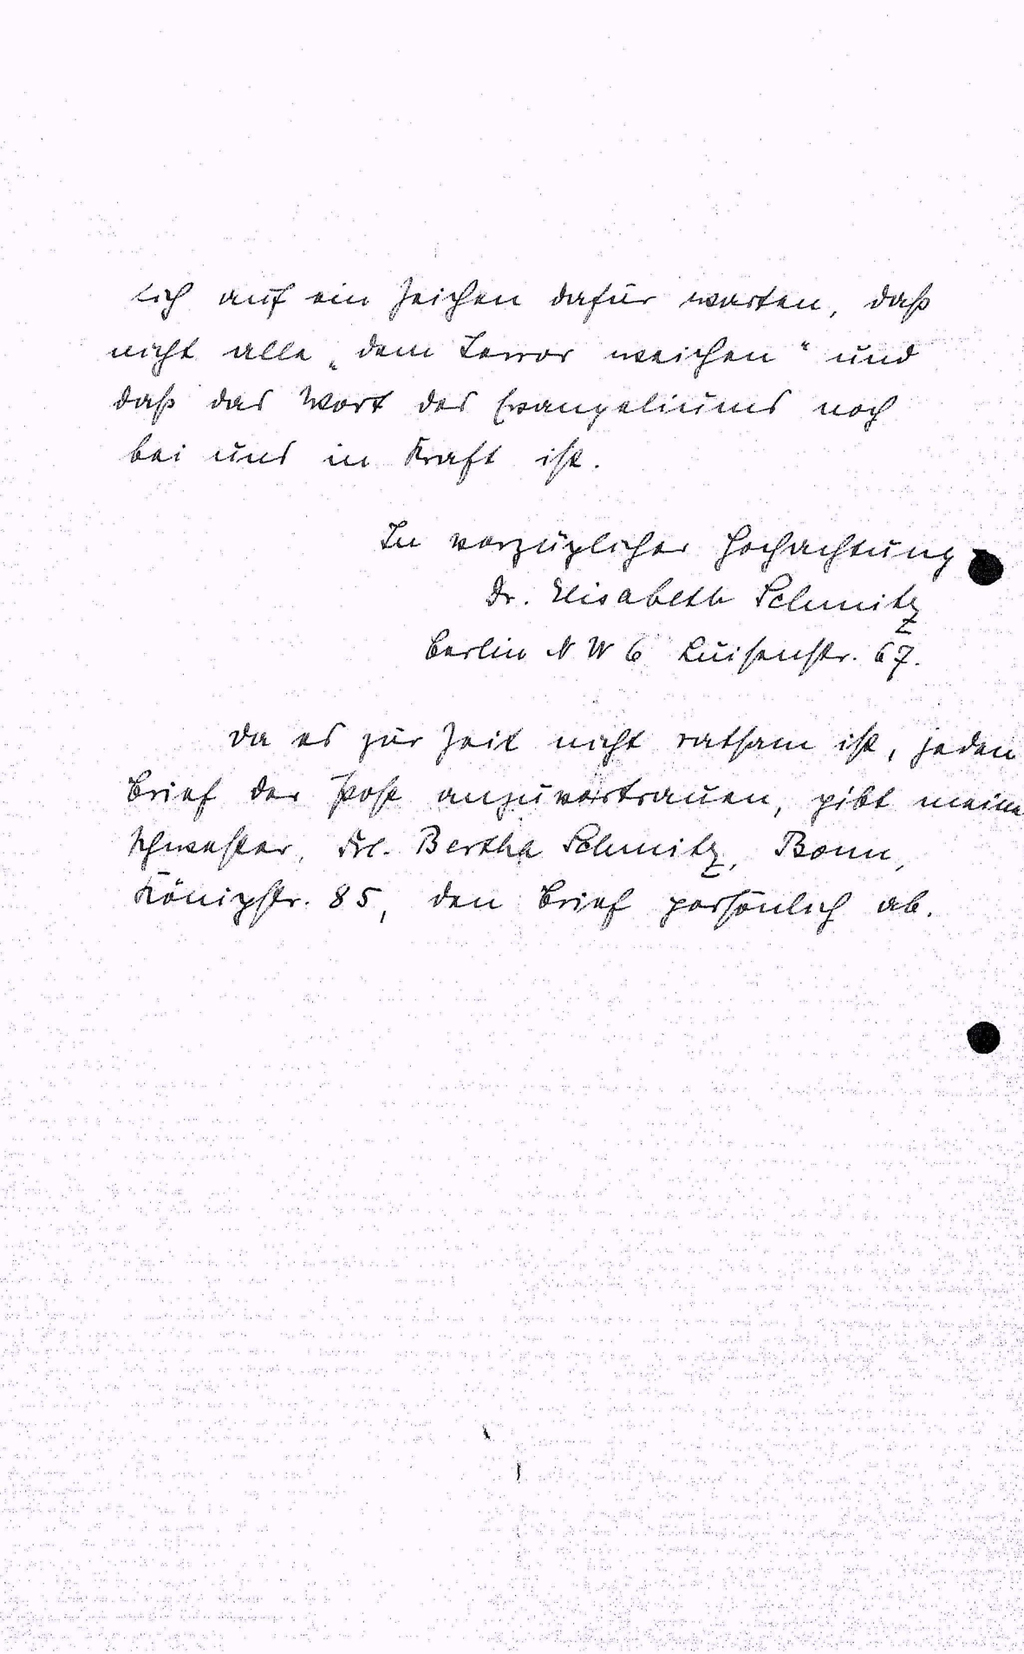 lich auf ein Zeichen dafür warten, daß
nicht alle „dem Terror weichen“ und
daß das Wort des Evangeliums noch
bei uns in Kraft ist.
In vorzüglicher Hochachtung
Dr. Elisabeth Schmitz
Berlin NW 6 Luisenstr. 67.
Da es zur Zeit nicht ratsam ist, jeden
Brief der Post anzuvertrauen, gibt meine
Schwester, Frl. Bertha Schmitz, Bonn,
Königstr. 85, den Brief persönlich ab.